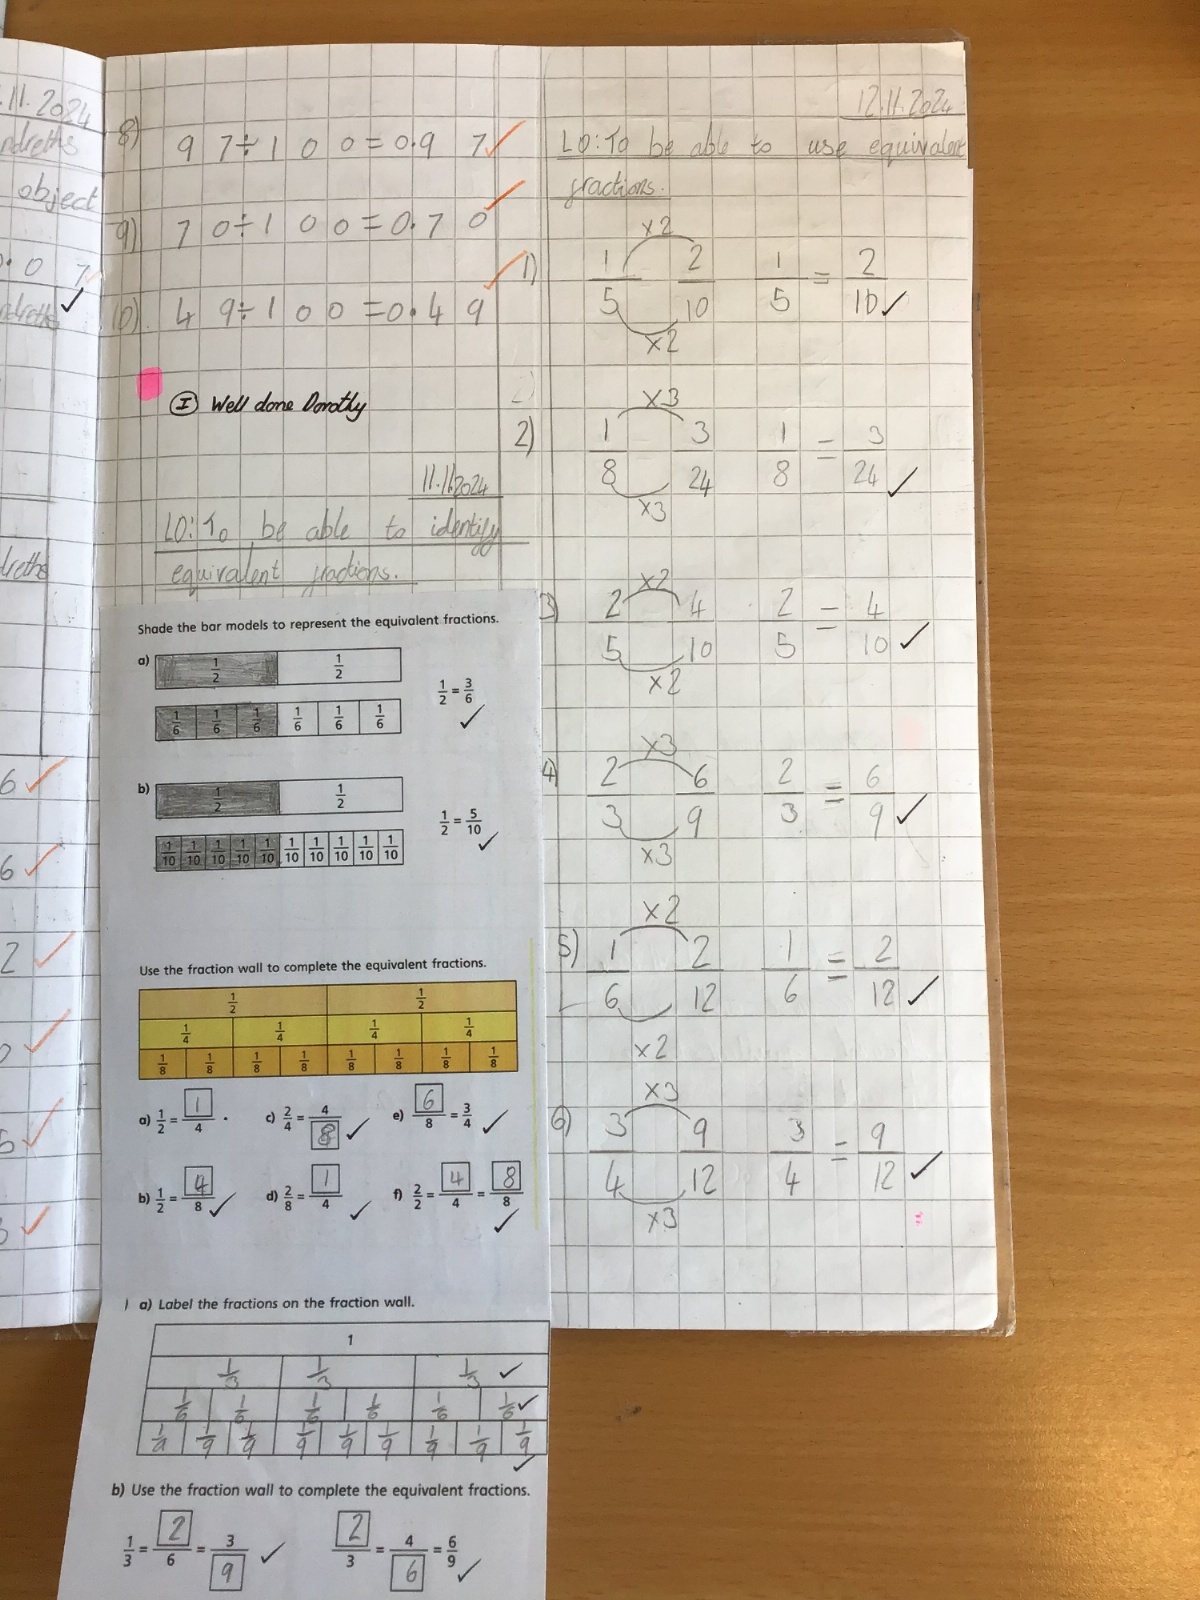 .11.2024
ndreths
object
0.07
ndreths
dreths
6
6
2
5
3
8) 97÷100=0.97
9) 70÷100=0.70
10) 49÷100=0.49
I Well done Dorothy
11.11.2024
LO: To be able to identify
equivalent fractions.
Shade the bar models to represent the equivalent fractions.
a) 1/2 1/2
1/2 = 3/6
1/6 1/6 1/6 1/6 1/6 1/6
b) 1/2 1/2
1/2 = 5/10
1/10 1/10 1/10 1/10 1/10 1/10 1/10 1/10 1/10 1/10
Use the fraction wall to complete the equivalent fractions.
1/2 1/2
1/4 1/4 1/4 1/4
1/8 1/8 1/8 1/8 1/8 1/8 1/8 1/8
a) 1/2 = 1/4 . c) 2/4 = 4/8 e) 6/8 = 3/4
b) 1/2 = 4/8 d) 2/8 = 1/4 f) 2/2 = 4/4 = 8/8
a) Label the fractions on the fraction wall.
1
1/3 1/3 1/3
1/6 1/6 1/6 1/6 1/6 1/6
1/9 1/9 1/9 1/9 1/9 1/9 1/9 1/9 1/9
b) Use the fraction wall to complete the equivalent fractions.
1/3 = 2/6 = 3/9 2/3 = 4/6 = 6/9
12.11.2024
LO: To be able to use equivalent
fractions.
×2
1) 1/5 2/10 1/5 = 2/10
×2
×3
2) 1/8 3/24 1/8 = 3/24
×3
×2
3) 2/5 4/10 2/5 = 4/10
×2
×3
4) 2/3 6/9 2/3 = 6/9
×3
×2
5) 1/6 2/12 1/6 = 2/12
×2
×3
6) 3/4 9/12 3/4 = 9/12
×3